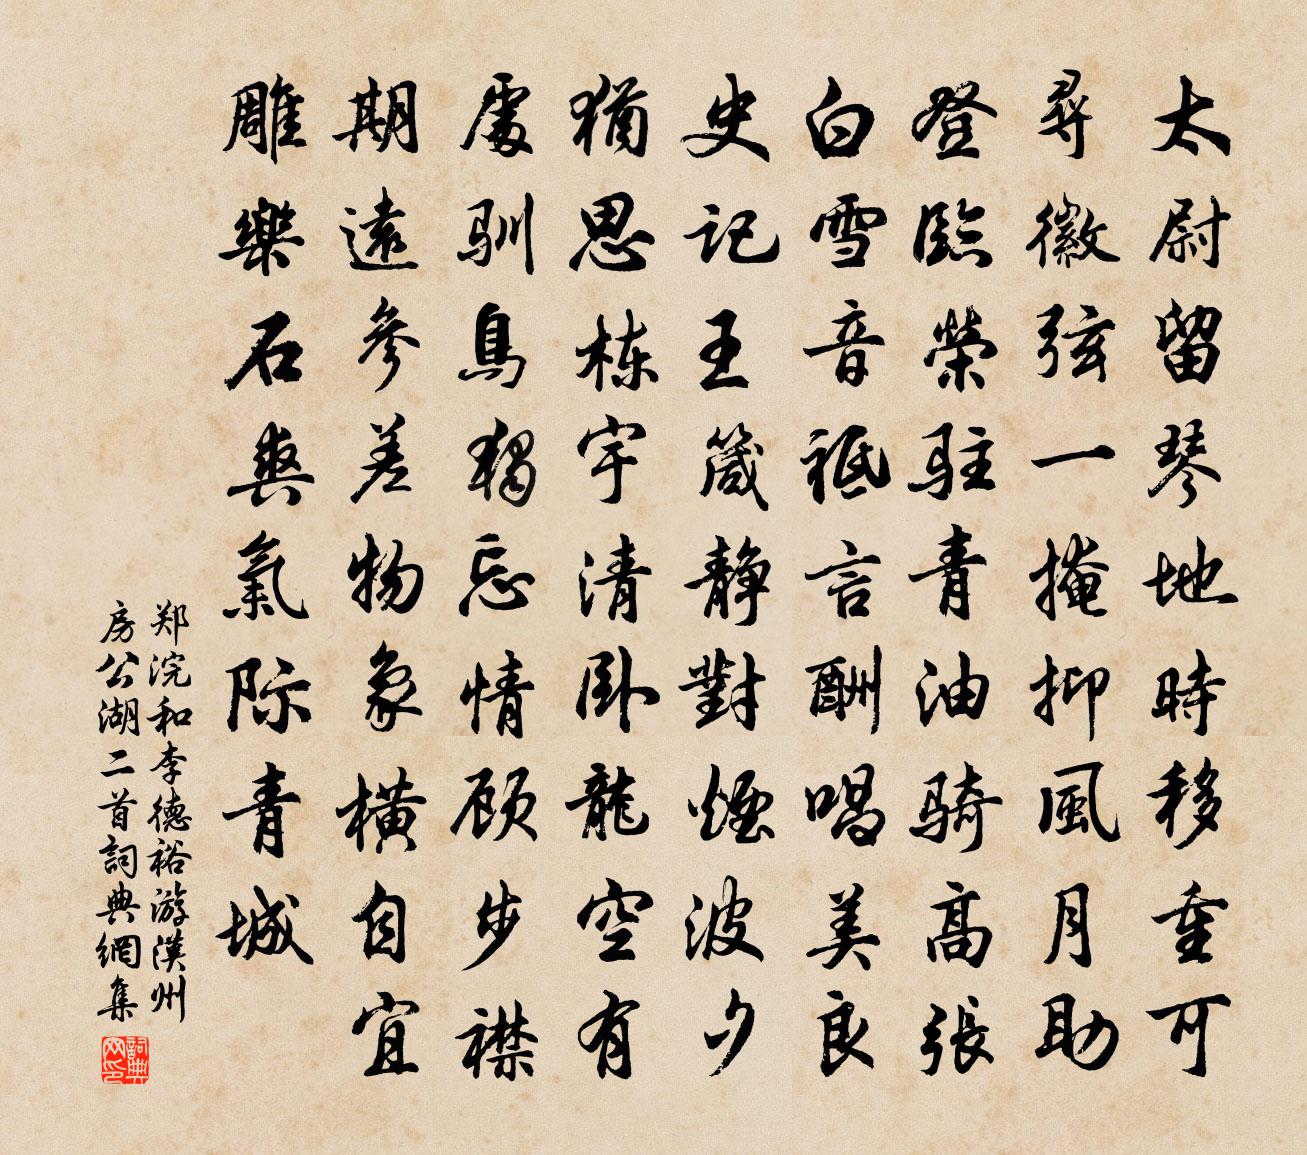 太尉留琴地時移重可
尋徽弦一掩抑風月助
登臨榮駐青油騎高張
白雪音祗言酬唱美良
史記王箴静對煙波夕
猶思栋宇清卧龍空有
處馴鳥獨忘情顾步襟
期遠參差物象橫自宜
雕樂石爽氣际青城
郑浣和李德裕游漢州
房公湖二首詞典網集
詞典
网印